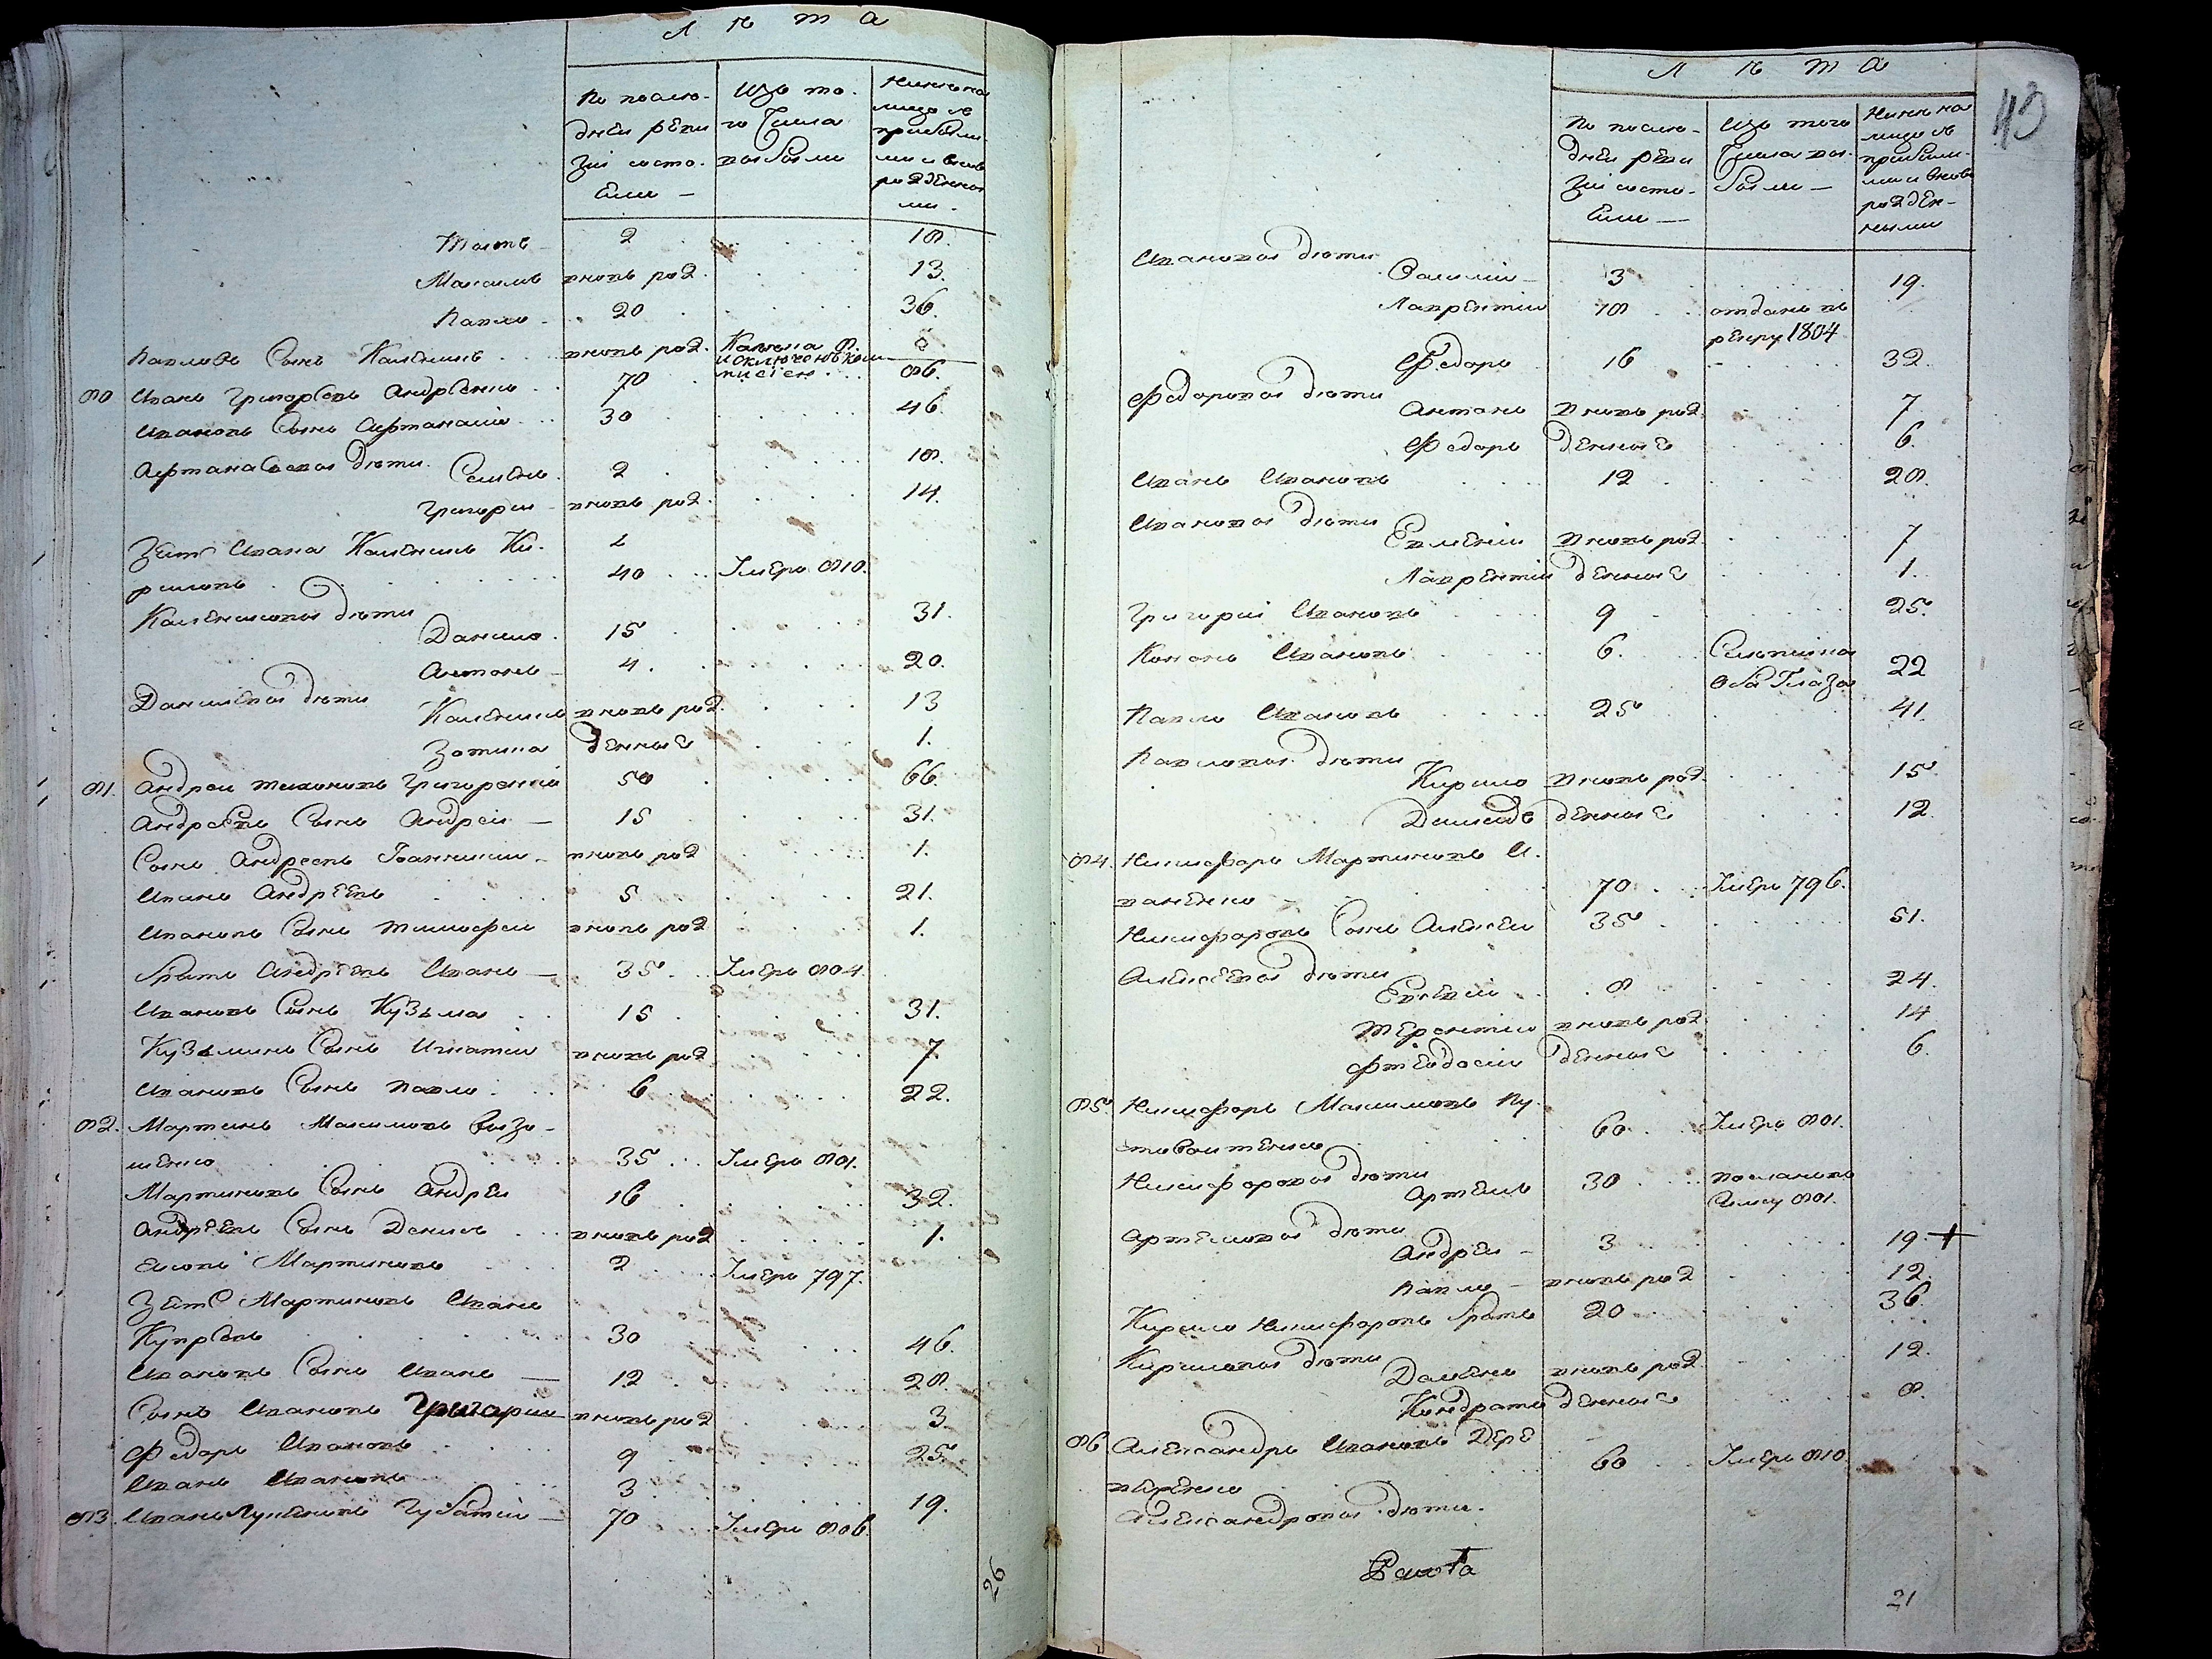 Л ѣ т а
По послѣ- Изъ то- Нынѣ на
дней реви го числа лицо съ
зіи состо- выбыло прибылы-
яли — ми и вновь
рожденны
ми -
Матвѣй 2 18.
Максимъ вновь род. 13.
Павло 20 36.
Павловъ Сынъ Каленикъ вновь род. 8
исключенъ
80 Иванъ Григорьевъ Андрѣенко 70 86.
Ивановъ Сынъ Афтанасій 30 46
Афтанасьевы дѣти Семенъ 2 18.
Григорій вновь род. 14.
Зять Ивана Каленикъ Ки-
риловъ 40 Умеръ 810.
Калениковы дѣти
Данило 15 31.
Антонъ 4. 20.
Даниловы дѣти
Каленикъ вновь рож 13
Зотика денные 1.
81. Андрей Тихоновъ Григоренко 50 66.
Андреевъ Сынъ Андрей — 15 31.
Сынъ Андреевъ Іоанникій вновь род 1.
Иванъ Андрѣевъ 5 21.
Ивановъ Сынъ Тимофей вновь род 1.
братъ Андрѣевъ Иванъ — 35 Умеръ 804.
Ивановъ Сынъ Кузьма 15 31.
Кузьминъ Сынъ Игнатій вновь род 7
Ивановъ Сынъ Павло 6 22.
82. Мартинъ Максимовъ
35 Умеръ 801.
Мартиновъ Сынъ Андрей 16 32.
Андрѣевъ Сынъ Денисъ вновь род 1.
Мартиновъ 2 Умеръ 797.
Зять Мартиновъ Иванъ
Купрѣевъ 30 46.
Ивановъ Сынъ Иванъ — 12 28.
Сынъ Ивановъ Григорій вновь род 3
Федоръ Ивановъ 9 25.
Иванъ Ивановъ 3 19.
83. Иванъ Лукьяновъ Губатій — 70 Умеръ 806.
26
Л ѣ т а
113
По послѣ- Изъ того Нынѣ на
дней реви числа вы- лицо съ
зіи состо- было — прибылы-
яли — ми и вновь
рожден-
ными
Ивановы дѣти
Василій 3 19.
Лаврентій 18 отданъ въ
рекру 1804
Федоръ 16 32.
Федоровы дѣти
Антонъ вновь рож 7
Федоръ денные 6.
Иванъ Ивановъ 12 28.
Ивановы дѣти
Евменій вновь рож 7
Лаврентій денные 1.
Григорій Ивановъ 9 25.
Кононъ Ивановъ 6. 22
оба глаза
Павло Ивановъ 25 41.
Павловы дѣти
Кирило вновь рож 15
Демидъ денные 12
84. Никифоръ Мартиновъ И-
ваненко 70 Умеръ 796.
Никифоровъ Сынъ Алексей 35 51.
Алексеевы дѣти
8 24.
Терентій вновь рож 14
Фтеодосій денные 6.
85. Никифоръ Максимовъ Пу-
стовойтенко 60 Умеръ 801.
Никифоровы дѣти
Артемъ 30 посланъ въ
801.
Артемовы дѣти
Андрей 3 19 +
Павло — вновь род 12.
Кирило Никифоровъ братъ 20 36.
Кириловы дѣти
Даміянъ вновь рож 12
Кондратъ денные 8.
86 Александръ Ивановъ Дере
вяренко 60 Умеръ 810
Александровы дѣти.
21